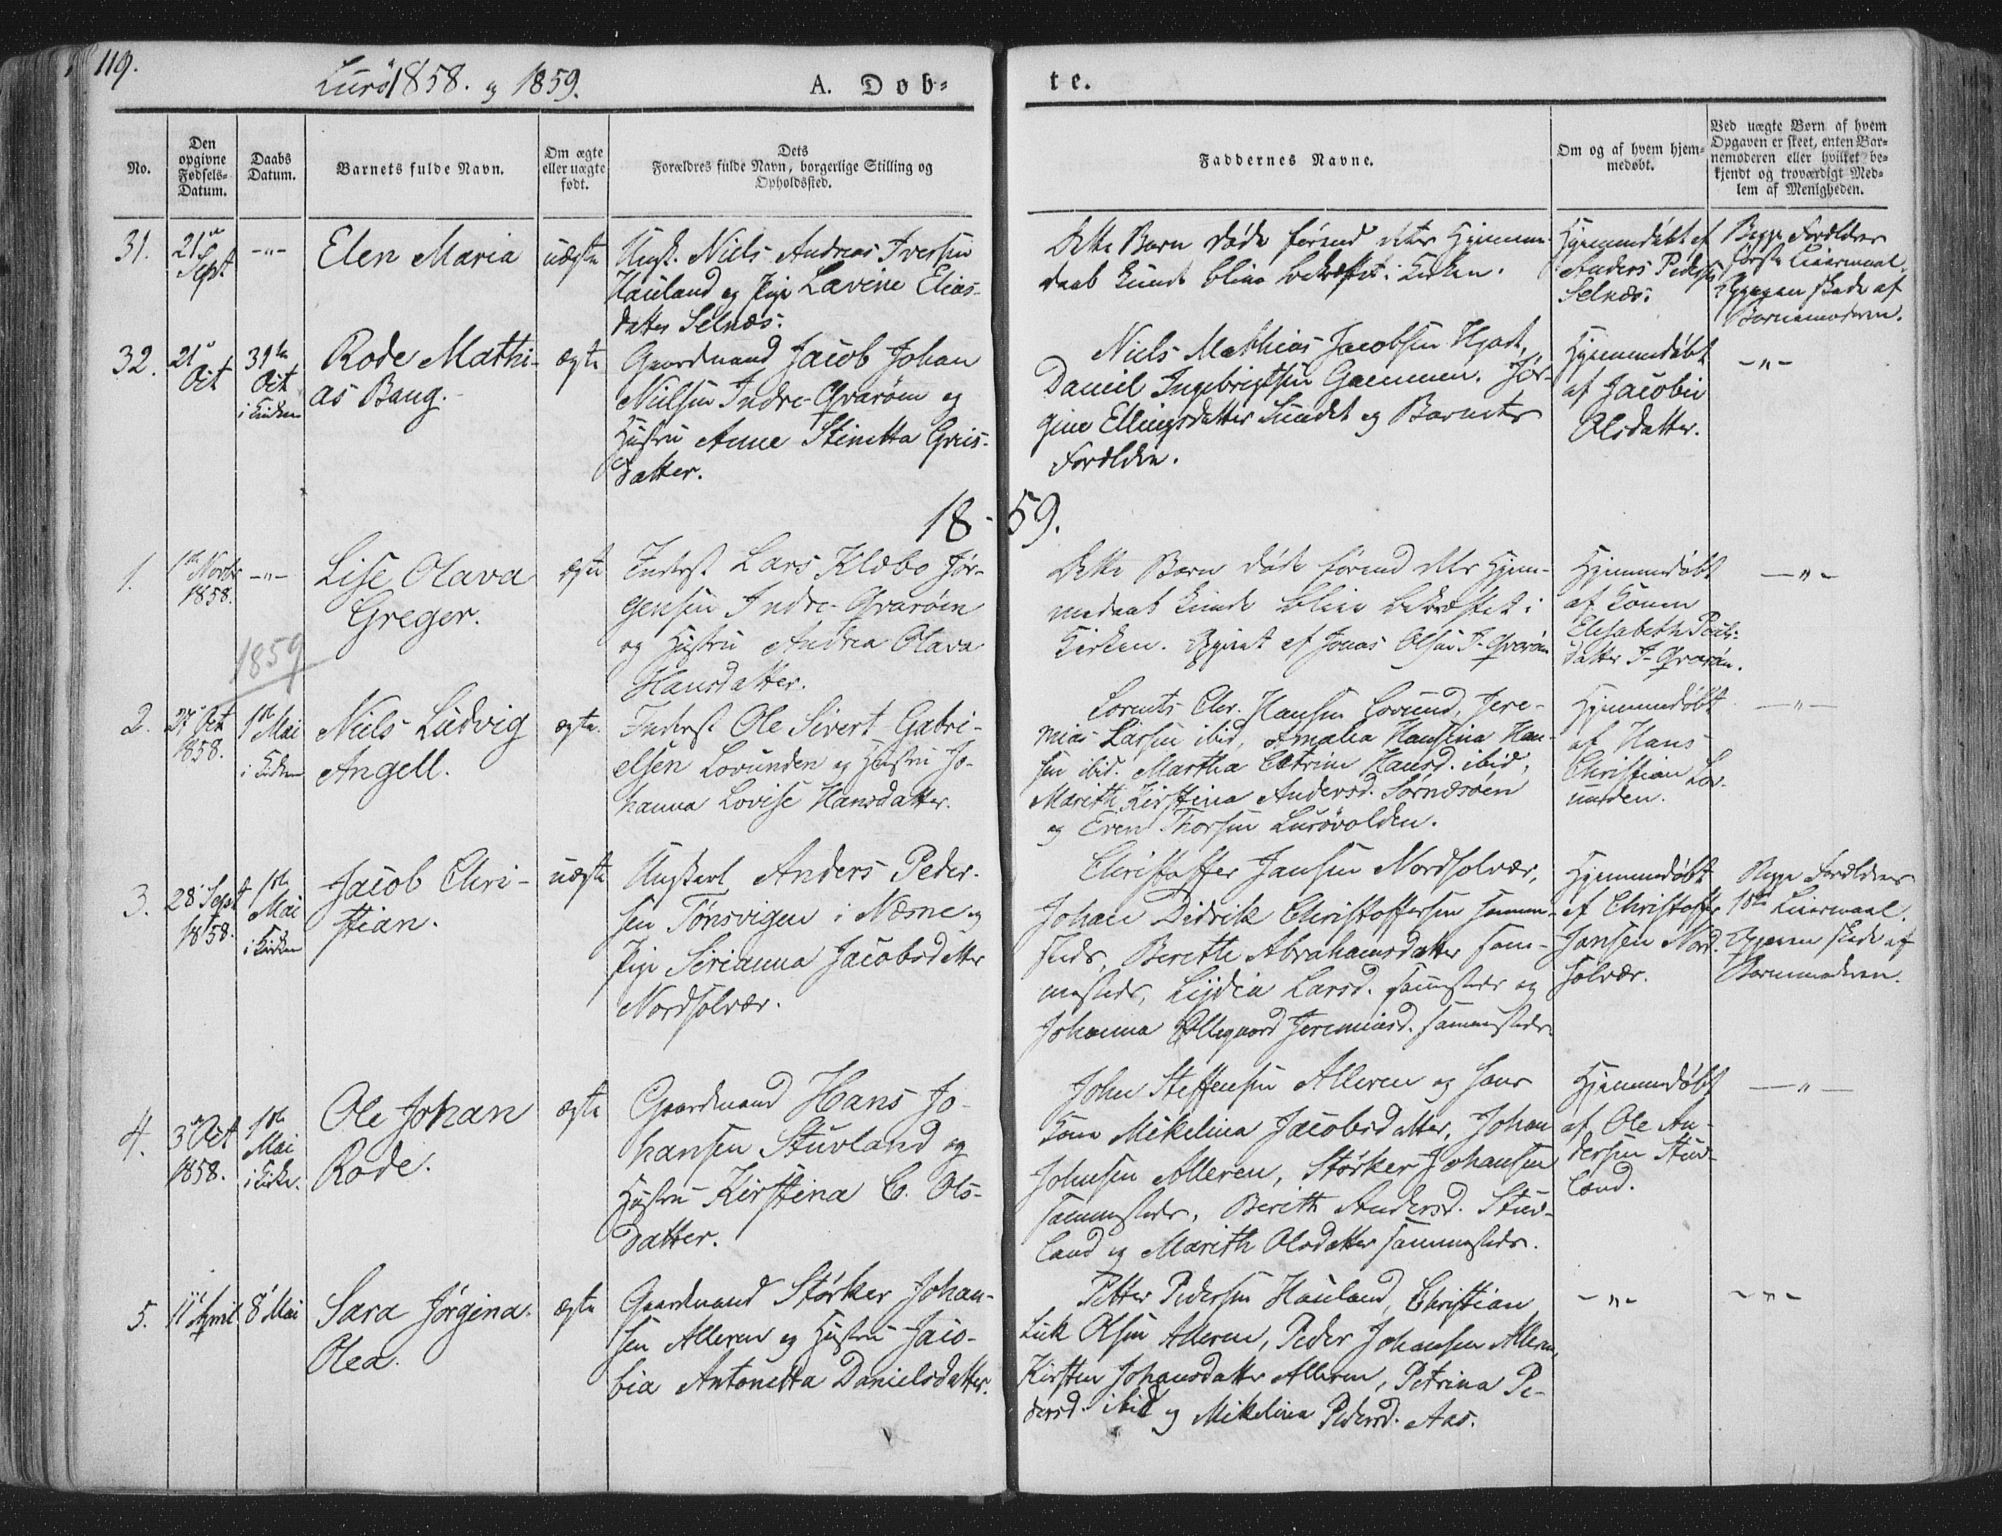 119.
Lurö 1858. og 1859.
A. Døb-
te.
No.
Den
opgivne
Fødsels-
Datum.
Daabs
Datum.
Barnets fulde Navn.
Om ægte
eller uægte
født.
Dets
Forældres fulde Navn, borgerlige Stilling og
Opholdssted.
Faddernes Navne.
Om og af hvem hjem-
medøbt.
Ved uægte Børn af hvem
Opgaven er skeet, enten Bar-
nemøderen eller hvilket be-
kjendt og troværdigt Med-
lem af Menigheden.
31.
21
Sept
-"-
Elen Maria
uægte
Ungk. Niels Andreas Iversen
Hauland og Pige Lavine Elias-
datter Selnæs.
Dette Barn døde førend dets Hjemme-
daab kunde blive bekræftet i Kirken.
Hjemmedøbt af
Anders Peders
Selnæs.
Begge Forældres
første Leiermaal.
Opgaven skede af
Barnemoderen.
32.
21
Oct
31te
Oct
i Kirken
Rode Mathi-
as Bang.
ægte
Gaardmand Jacob Johan
Nielsen Indre-Qvarøen og
Hustru Anne Stinetta Griis-
datter.
Niels Mathias Jacobsen Hjart,
Daniel Ingebrigtsen Gammen. Jør-
gine Ellingsdatter Sundet og Barnets
Forældre.
Hjemmedøbt
af Jacobie
Olsdatter.
-"-
18-59.
1.
1ste Novbr
1858.
-"-
Lise Olava
Greger.
ægte
Inderst Lars Klæbo Jør-
gensen Indre-Qvarøen
og Hustru Andrea Olava
Hansdatter.
Dette Barn døde førend dets Hjem-
medaab kunde blive bekræftet i
Kirken. af Jonas Olsen I-Qvarøen
Hjemmedøbt
af Konen
Elisabeth Pouls-
datter I-Qvarøen.
-"-
1859
2.
27 Oct
1858.
1ste
Mai
i Kirken
Niels Ludvig
Angell.
ægte
Inderst Ole Sivert Gabri-
elsen Lovunden og Hustru Jo-
hanna Lovise Hansdatter.
Lorents Chr. Hansen Lovund, Jere-
mias Larsen ibid, Amalia Hansina Han-
sen ibid. Martha Catrine Hansd. ibid,
Marith Kirstina Andersd. Sørnesøen
og Even Thorsen Lurøvolden.
Hjemmedøbt
af Hans
Christian Lo-
vunden.
-"-
3.
28 Sept
1858.
1ste
Mai
i Kirken
Jacob Chri-
stian.
uægte
Ungkarl Anders Peder-
sen Tønsvigen i Næsne og
Pige Serianna Jacobsdatter
Nordsolvær.
Christoffer Jansen Nordsolvær,
Johan Didrik Christoffersen sammen-
steds, Berethe Abrahamsdatter sam-
mesteds, Lydia Larsd. sammesteds og
Johanna Ollegaard Jeremiasd. sammesteds.
Hjemmedøbt
af Christoffer
Jansen Nord-
solvær.
Begge Forældres
1ste Leiermaal.
Opgaven skede af
Barnemoderen.
4.
3 Oct
1858.
1ste
Mai
i Kirke.
Ole Johan
Rode.
ægte
Gaardmand Hans Jo-
hansen Stuvland og
Hustru Kirstina C. Ols-
datter.
John Steffensen Alleren og hans
Kone Mikelina Jacobsdatter, Johan
Johnsen Alleren, Størker Johansen
sammesteds, Berith Andersd. Stuv-
land og Marith Olsdatter sammesteds.
Hjemmedøbt
af Ole An-
dersen Stuv-
land.
-"-
5.
11 April
8 Mai
Sara Jørgina
Olea.
ægte
Gaardmand Størker Johan-
sen Alleren og Hustru Jaco-
bia Antonetta Danielsdatter.
Petter Pedersen Hauland, Christian
Luk Olsen Alleren, Peder Johansen Alleren,
Kirsten Johansdatter Alleren, Petrina Pe-
dersd. ibid og Mikelina Pedersd. Aas.
-"-
-"-